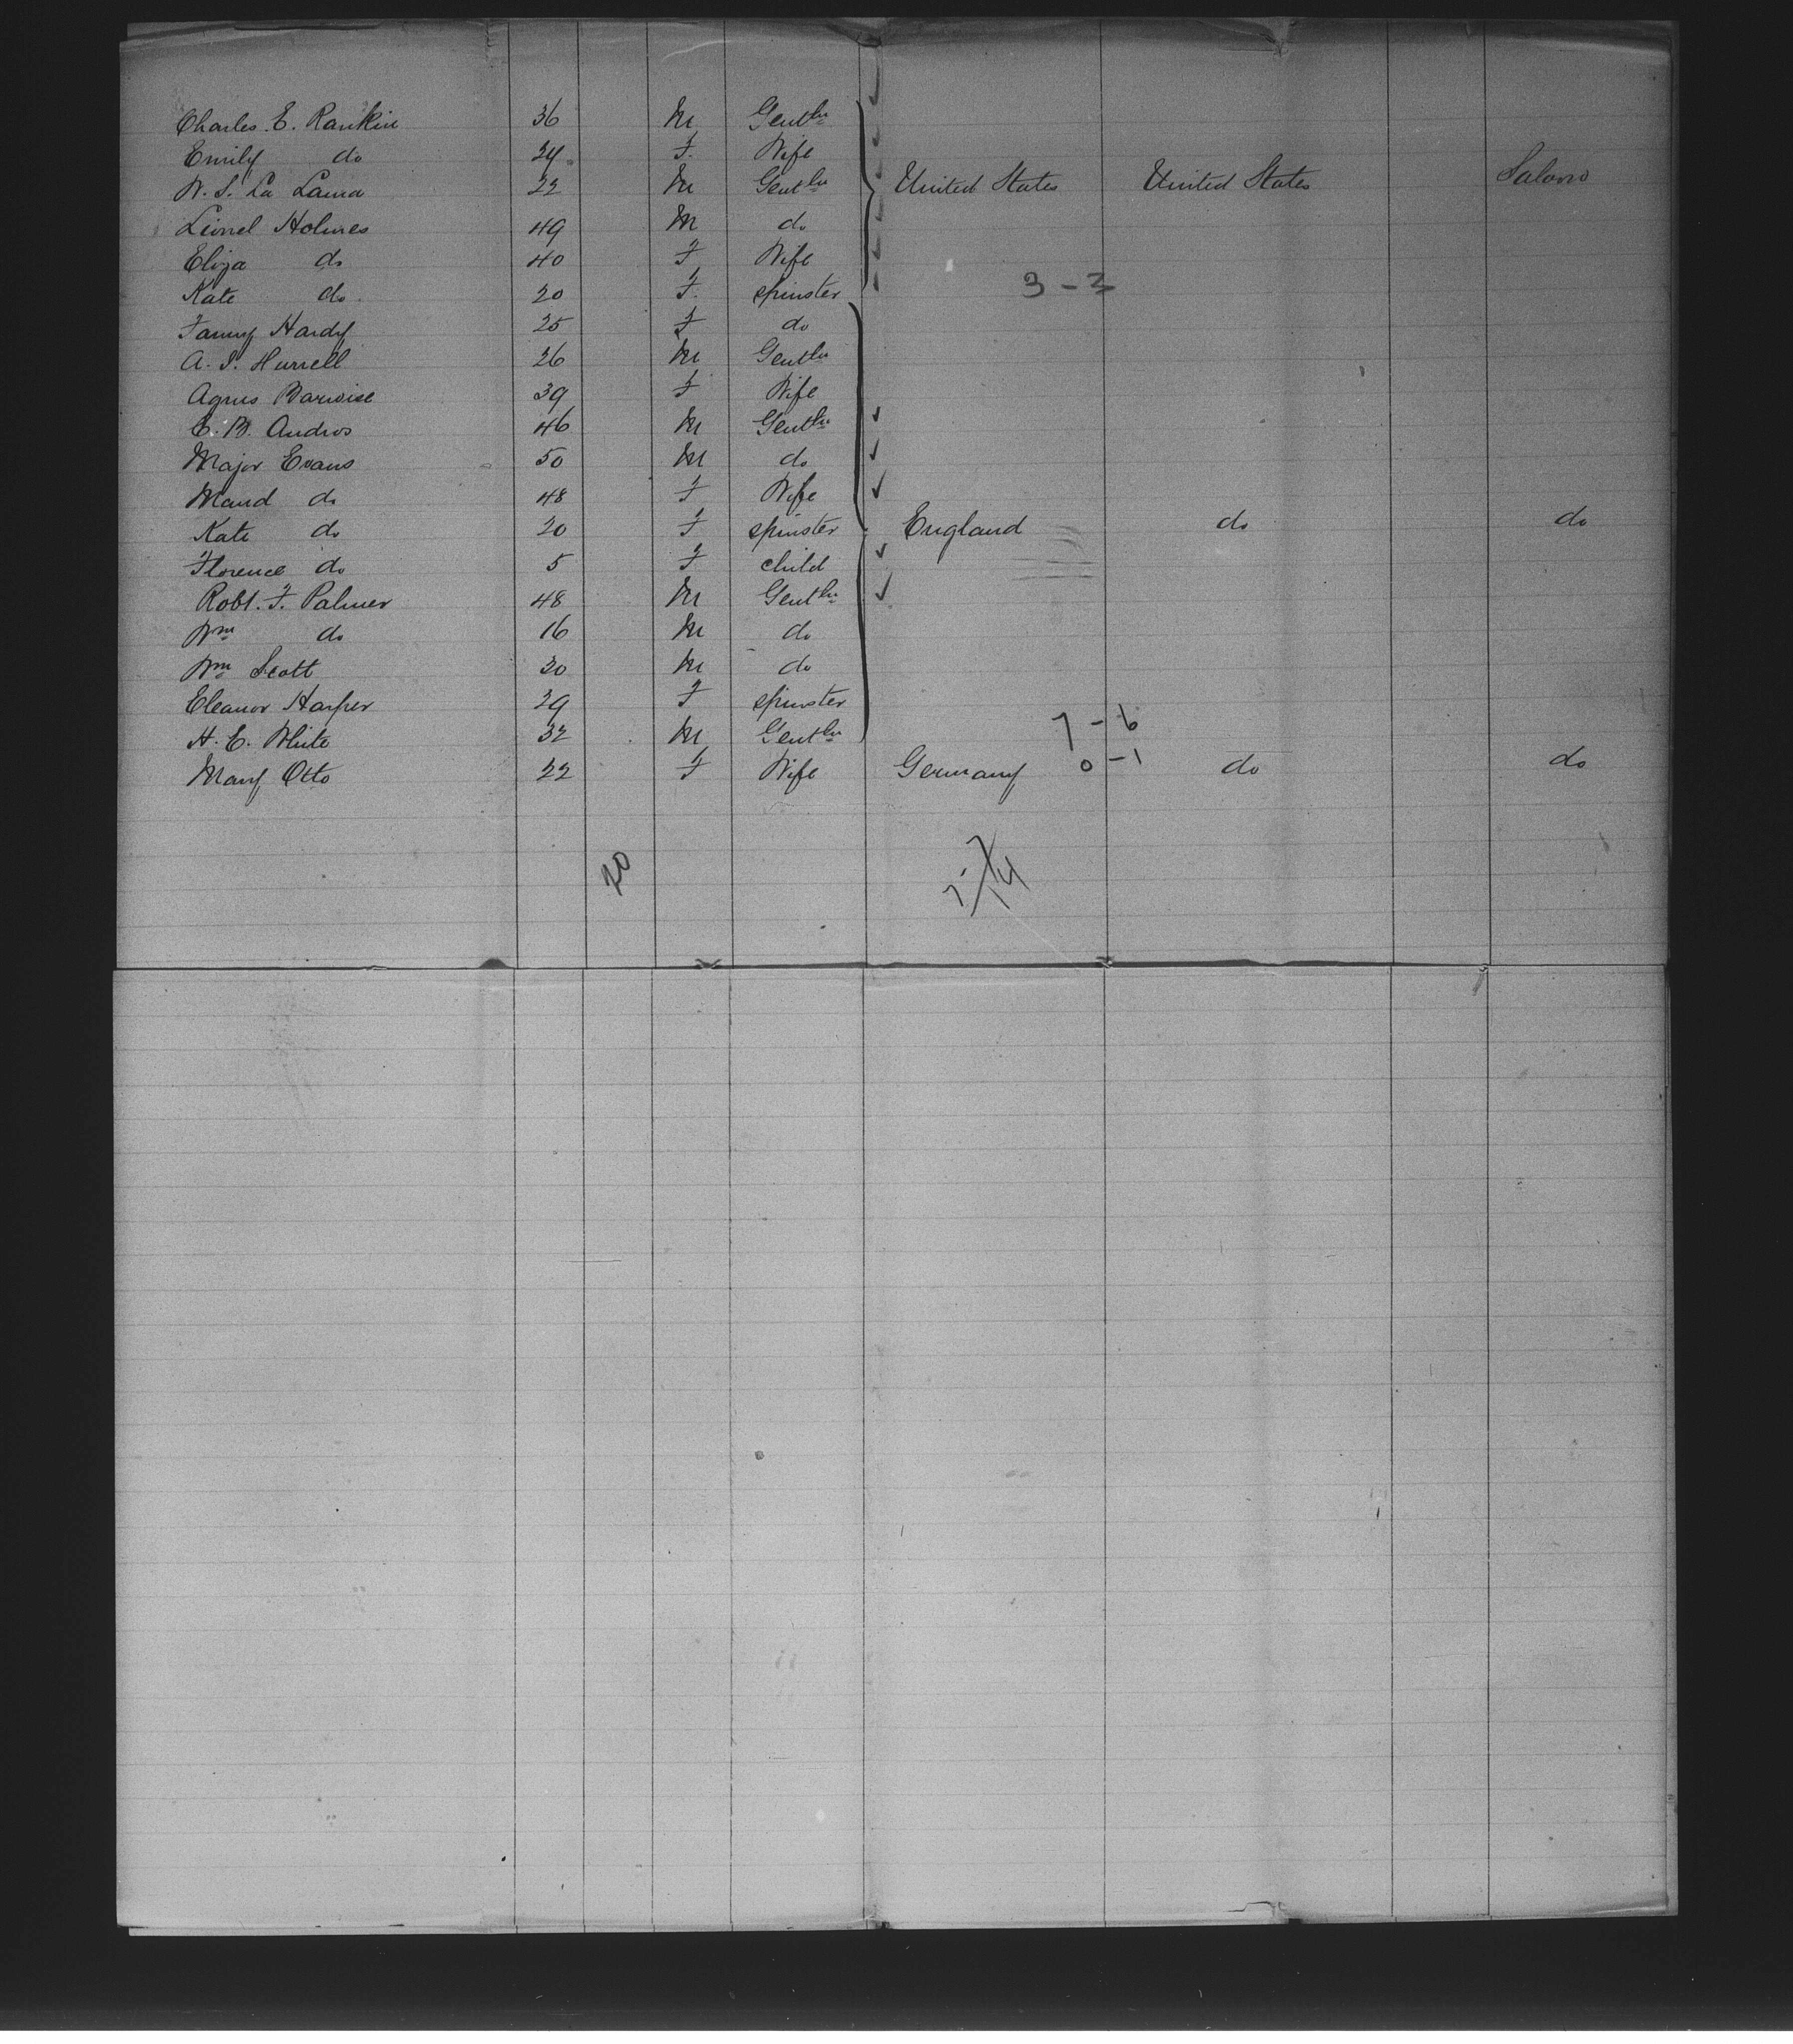 Charles. E. Rankin 36 M Gentln
Emily do 24 F. Wife
W. S. La Lama 22 M Gentln United States United States Saloon
Lionel Holmes 49 M do
Eliza do 40 F Wife
Kate do. 20 F. spinster 3 - 3
Fanny Hardy 25 F do
A. S. Hurrell 26 M Gentln
Agnes Barwise 39 F Wife
E. B. Andros 46 M Gentln
Major Evans 50 M do
Maud do 48 F Wife
Kate do 20 F spinster England do do
Florence do 5 F child
Robt. F. Palmer 48 M Gentln
Wm do 16 M do
Wm Scott 20 M do
Eleanor Harper 29 F spinster
H. E. White 32 M Gentln 7 - 6
Mary Otto 22 F Wife Germany 0 - 1 do do
20